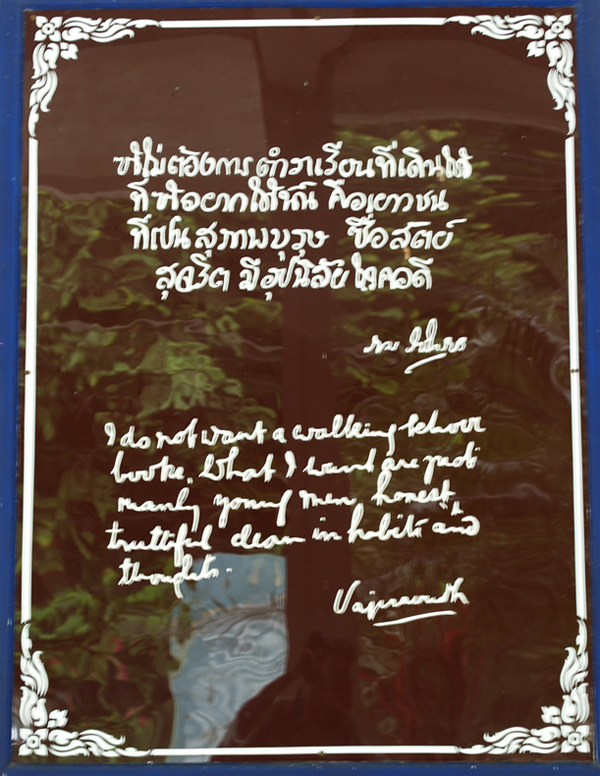 ข้าไม่ต้องการ ตำราเรียนที่เดินได้
ที่ข้าอยากได้นั้น คือเยาวชน
ที่เป็น สุภาพบุรุษ ซื่อสัตย์
สุจริต มีอุปนิสัย ใจคอดี
ราม
I do not want a walking school
books. What I want are just
manly young men, honest
truthful clean in habits and
thoughts.
Vajiravudh